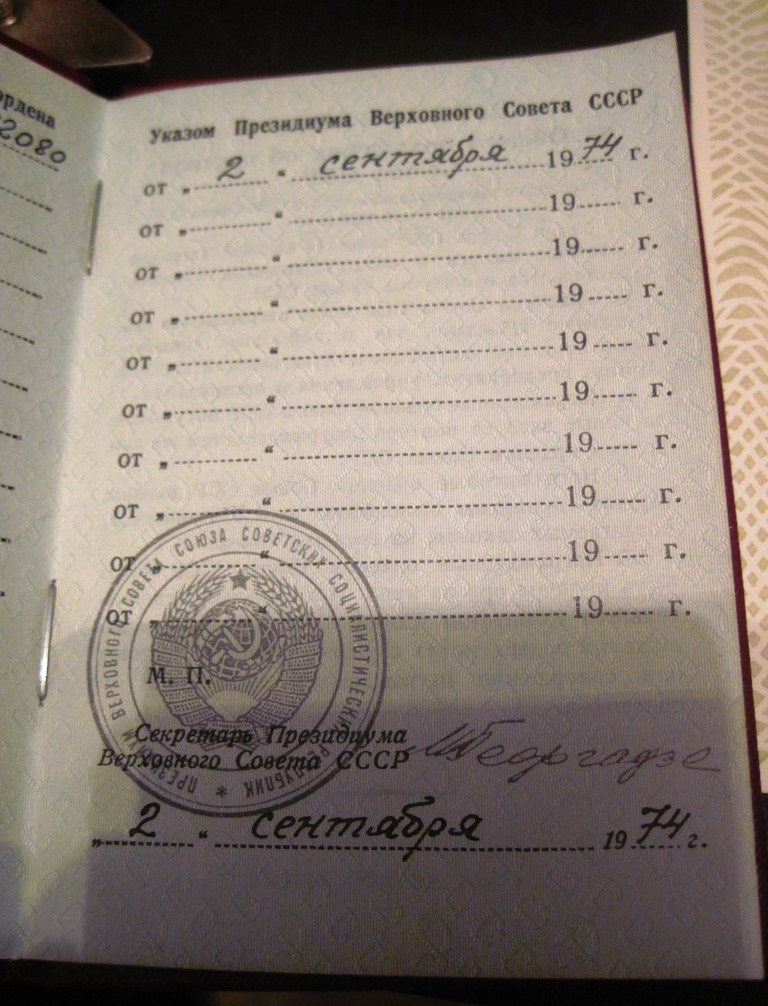 ордена
2080
Указом Президиума Верховного Совета СССР
от „ 2 “ сентября 1974 г.
от „ “ 19 г.
от „ “ 19 г.
от „ “ 19 г.
от „ “ 19 г.
от „ “ 19 г.
от „ “ 19 г.
от „ “ 19 г.
от „ “ 19 г.
от „ “ 19 г.
ПРЕЗИДИУМ ВЕРХОВНОГО СОВЕТА СОЮЗА СОВЕТСКИХ СОЦИАЛИСТИЧЕСКИХ РЕСПУБЛИК *
М. П.
Секретарь Президиума
Верховного Совета СССР
МГеоргадзе
„ 2 “ сентября 1974 г.